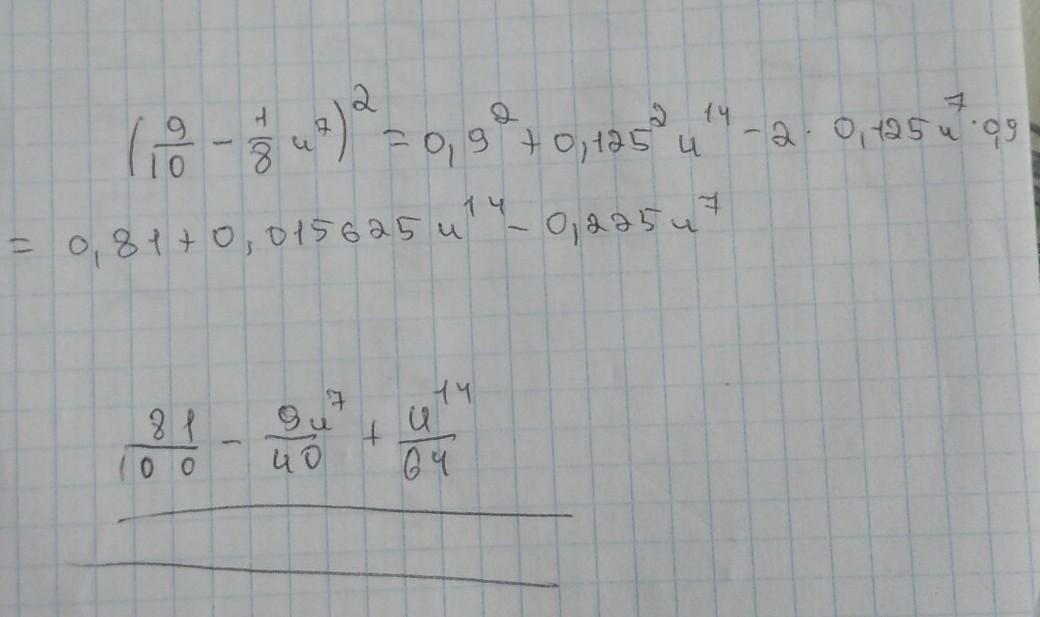 (9/10 - 1/8 u⁷)² = 0,9² + 0,125² u¹⁴ - 2 · 0,125 u⁷ · 0,9
= 0,81 + 0,015625 u¹⁴ - 0,225 u⁷
81/100 - 9u⁷/40 + u¹⁴/64